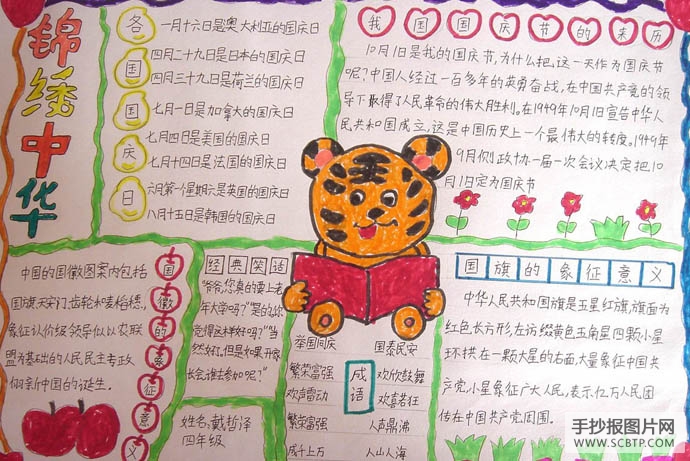 锦绣中华
各国国庆日
一月十六日是澳大利亚的国庆日
四月二十九日是日本的国庆日
四月三十日是荷兰的国庆日
七月一日是加拿大的国庆日
七月四日是美国的国庆日
七月十四日是法国的国庆日
六月第一个星期六是英国的国庆日
八月十五日是韩国的国庆日
我国国庆节的来历
10月1日是我的国庆节,为什么把,这一天作为国庆节
呢?中国人经过一百多年的英勇奋战,在中国共产党的领
导下取得了人民革命的伟大胜利。在1949年10月1日宣告中华人
民共和国成立,这是中国历史上一个最伟大的转度。1949年
9月例政协一届一次会议决定把10
月1日定为国庆节
国徽的象征意义
中国的国徽图案内包括
国旗、天安门、齿轮和麦稻穗,
象征认价级领导似以农联
盟为基础的人民民主专政
伺新中国的诞生.
经典笑话
"爷爷,您真的要上老
年大学吗?""是的,你
觉得这样好吗?""当
然好,但是如果开家
长会,谁去参加呢?"
姓名,戴哲泽
四年级
成语
举国同庆 国泰民安
繁荣富强 欢欣鼓舞
欢声雷动 欢喜若狂
繁荣富强 人声鼎沸
成千上万 人山人海
国旗的象征意义
中华人民共和国旗是五星红旗,旗面为
红色,长方形,在访缀黄色五角星四颗小星
环拱在一颗大星的右面,大量象征中国共
产党,小星象征广大人民,表示亿万人民团
传在中国共产党周围.
手抄报图片网
WWW.SCBTP.COM